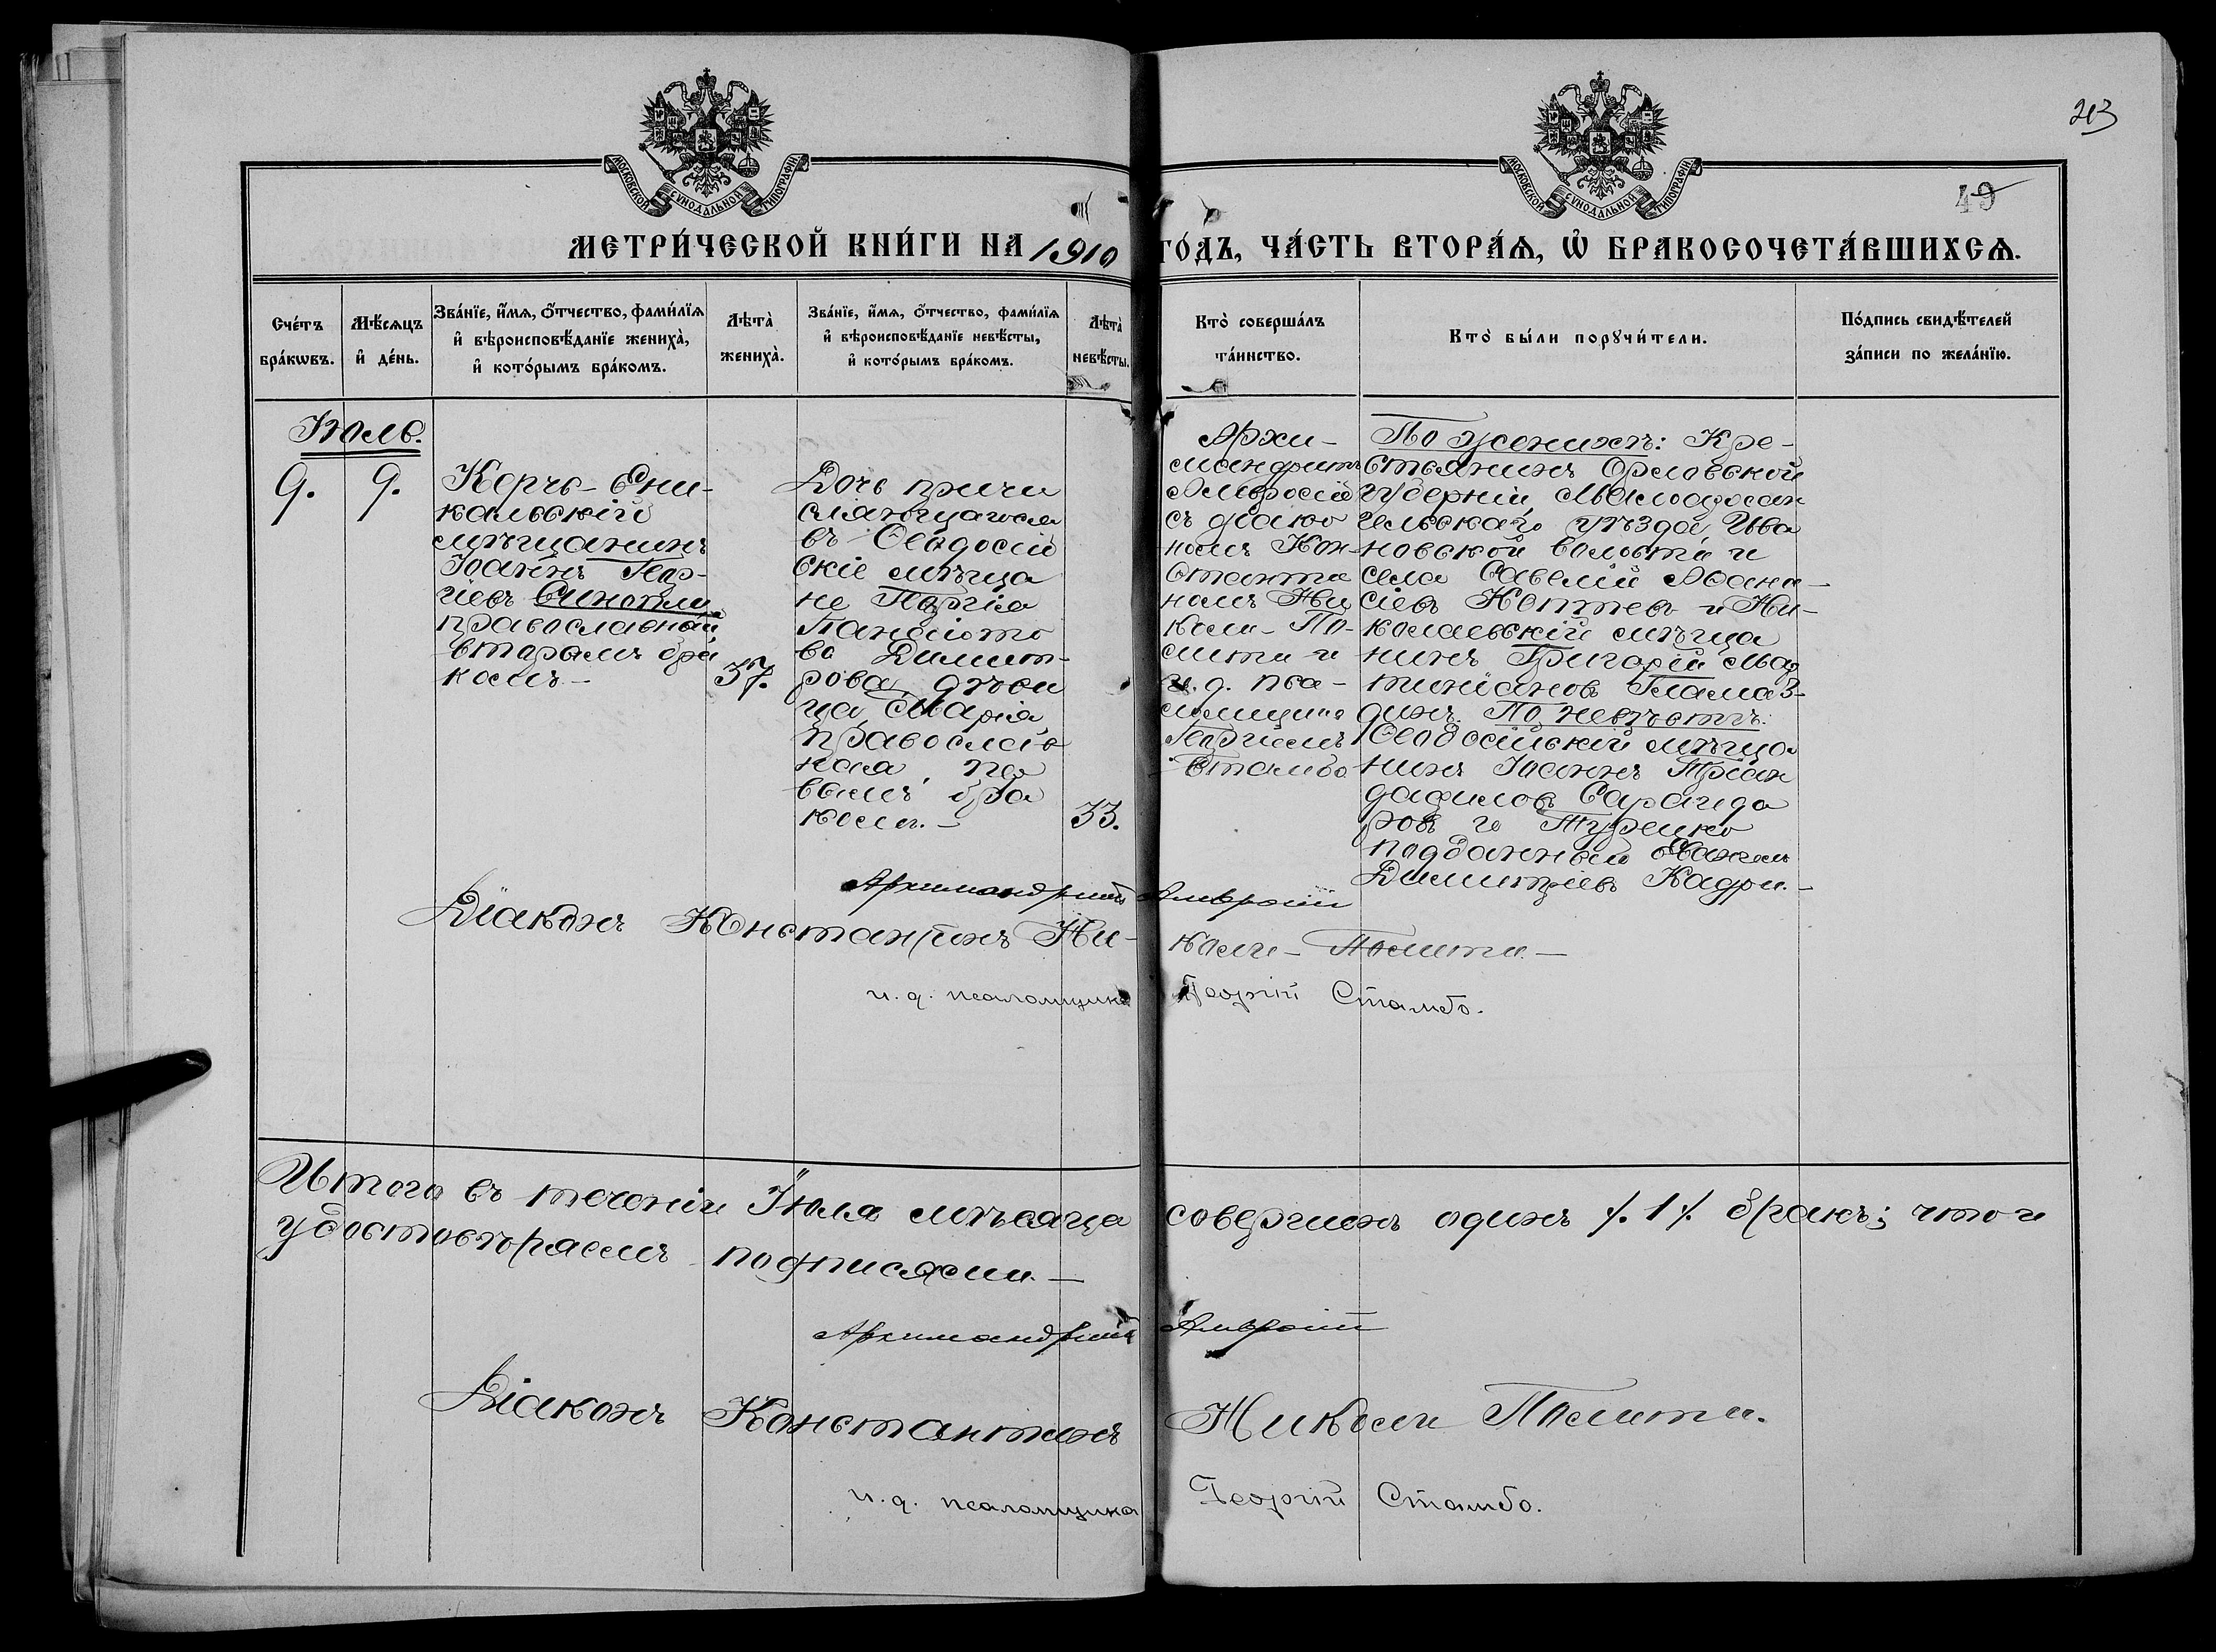 213
49
МОСКОВСКОЙ СѴНОДАЛЬНОЙ ТИПОГРАФІИ
МОСКОВСКОЙ СѴНОДАЛЬНОЙ ТИПОГРАФІИ
МЕТРИ́ЧЕСКОЙ КНИ́ГИ НА 1910 ГО́ДЪ, ЧА́СТЬ ВТОРА́Ѧ, Ѽ БРАКОСОЧЕТА́ВШИХСѦ.
Сче́тъ бра́кѡвъ.
Мѣ́сѧцъ и҆ де́нь.
Зва́нїе, и҆́мѧ, ѻ҆́тчество, фами́лїѧ
и҆ вѣроисповѣ́данїе жениха̀,
и҆ кото́рымъ бра́комъ.
Лѣта̀ жениха̀.
Зва́нїе, и҆́мѧ, ѻ҆́тчество, фами́лїѧ
и҆ вѣроисповѣ́данїе невѣ́сты,
и҆ кото́рымъ бра́комъ.
Лѣта̀ невѣ́сты.
Кто̀ соверша́лъ
та́инство.
Кто̀ бы́ли порꙋчи́тели.
По́дпись свидѣ́телей
за́писи по жела́нїю.
Іюль.
9.
9.
Керчь-Ени-
кальскій
мѣщанинъ
Іоаннъ Геор-
гіевъ Синопли
православный
вторымъ бра
комъ-
37.
Дочь причи
сляющагося
въ Ѳеодосій
скіе мѣща
не Георгія
Панаіото
ва Димит-
рова, дѣви
ца Марія
православ
ная, пер
вымъ бра
комъ.-
33.
Архи-
мандритъ
Амвросій
съ діако
номъ Кон-
станти
номъ Ни
коли-По-
лити и
и. д. пса-
ломщика
Георгіемъ
Стамбо
По женихѣ: Кре-
стьянинъ Орловской
губерніи, Малоархан
гельскаго уѣзда, Ива
новской волости и
села Савелій Аѳана-
сіевъ Коптевъ и Ни-
колаевскій мѣща
нинъ Григорій Мар
тиніановъ Гламаз-
динъ. По невѣстѣ:
Ѳеодосійскій мѣща
нинъ Іоаннъ Тріан
дафиловъ
и Турецко
подданный
Димитріевъ Кадри.-
Архимандритъ Амвросій
Діаконъ Константинъ Ни-
коли-Полити.-
и. д. псаломщика Георгій Стамбо.
Итого въ теченіи Іюля мѣсяца совершенъ одинъ /.1/. бракъ; что и
удостовѣряемъ подписями.-
Архимандритъ Амвросій
Діаконъ Константинъ Николи Полити.
и. д. псаломщика Георгій Стамбо.